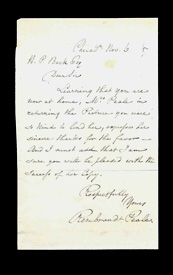 Philad. Nov. 6
R. P. Buck Esq
Dear Sir
Learning that you are
now at home, Mrs. Peale in
returning the Picture you were
so kind to lend her, expresses her
sincere thanks for the favor—
And I must add that I am
sure you will be pleased with the
success of her Copy.
Respectfully
Yours
Rembrandt Peale